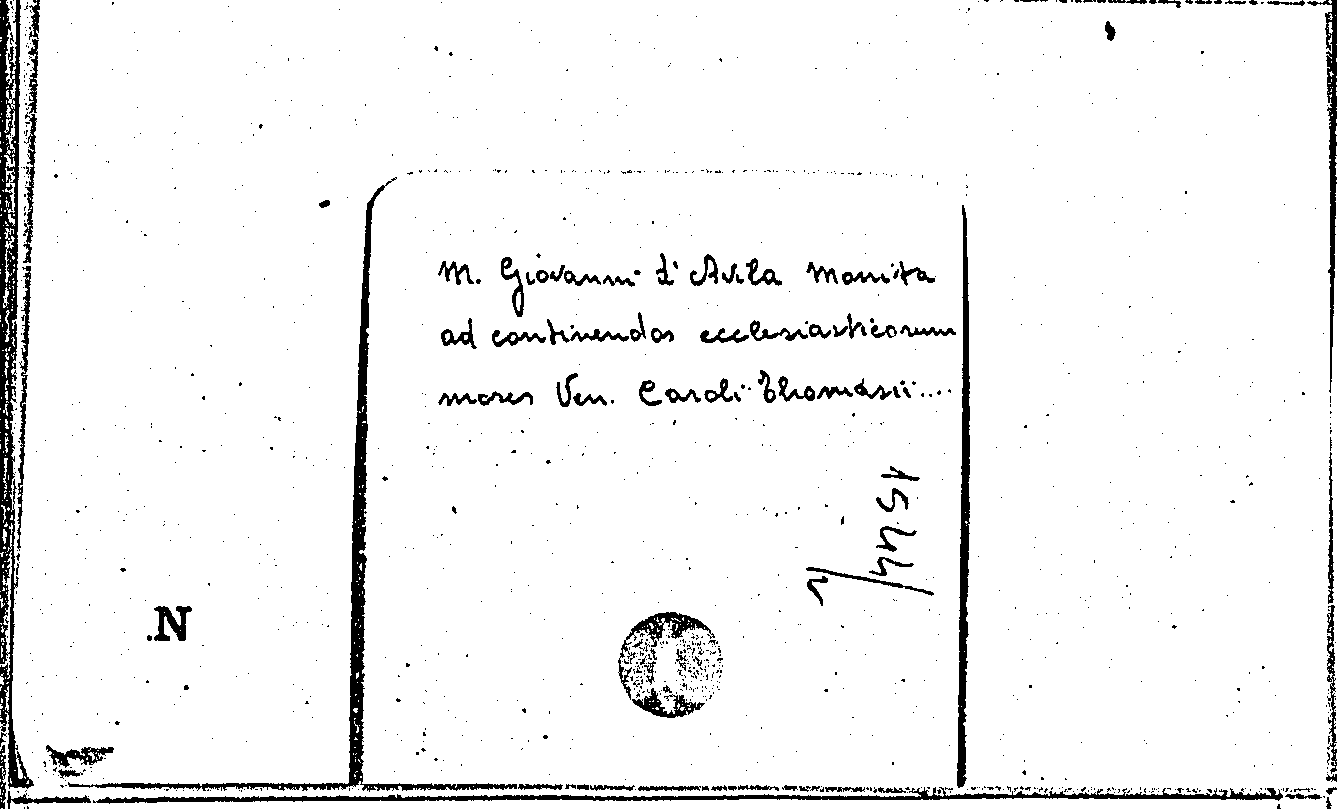 M. Giovanni d'Avila Monita
ad continendos ecclesiasticorum
mores Ven. Caroli Thomasii....
1544/2
.N